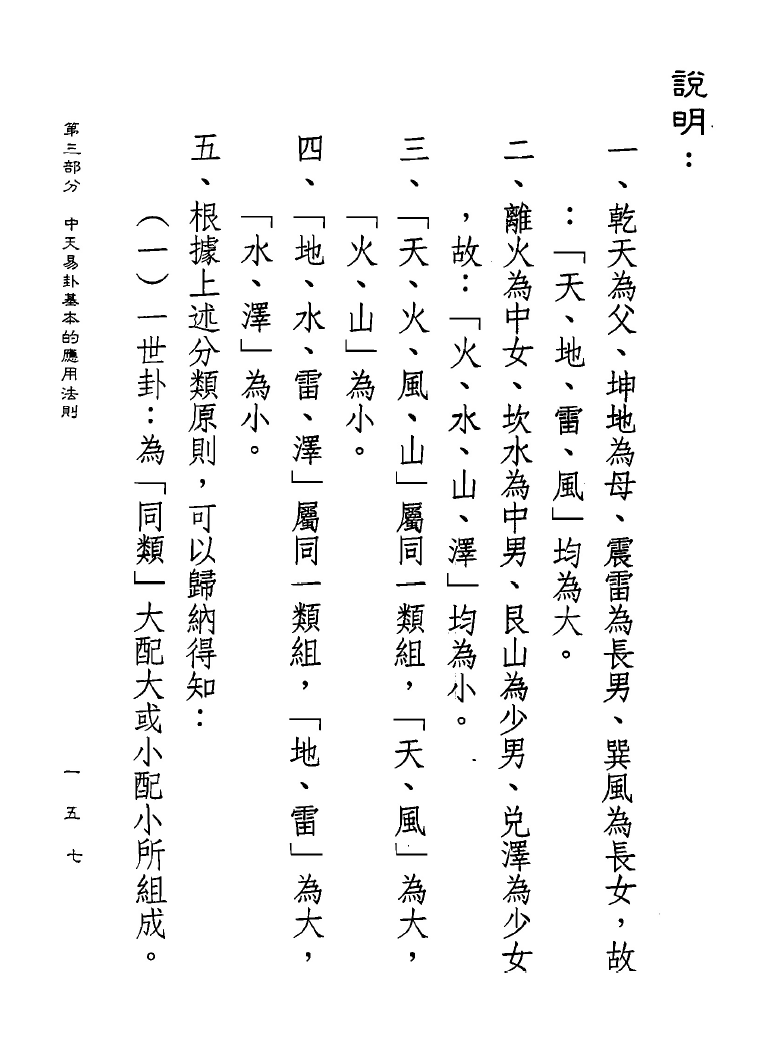 說明：
一、乾天為父、坤地為母、震雷為長男、巽風為長女，故
：「天、地、雷、風」均為大。
二、離火為中女、坎水為中男、艮山為少男、兌澤為少女
，故：「火、水、山、澤」均為小。
三、「天、火、風、山」屬同一類組，「天、風」為大，
「火、山」為小。
四、「地、水、雷、澤」屬同一類組，「地、雷」為大，
「水、澤」為小。
五、根據上述分類原則，可以歸納得知：
（一）一世卦：為「同類」大配大或小配小所組成。
第三部分　中天易卦基本的應用法則
一五七